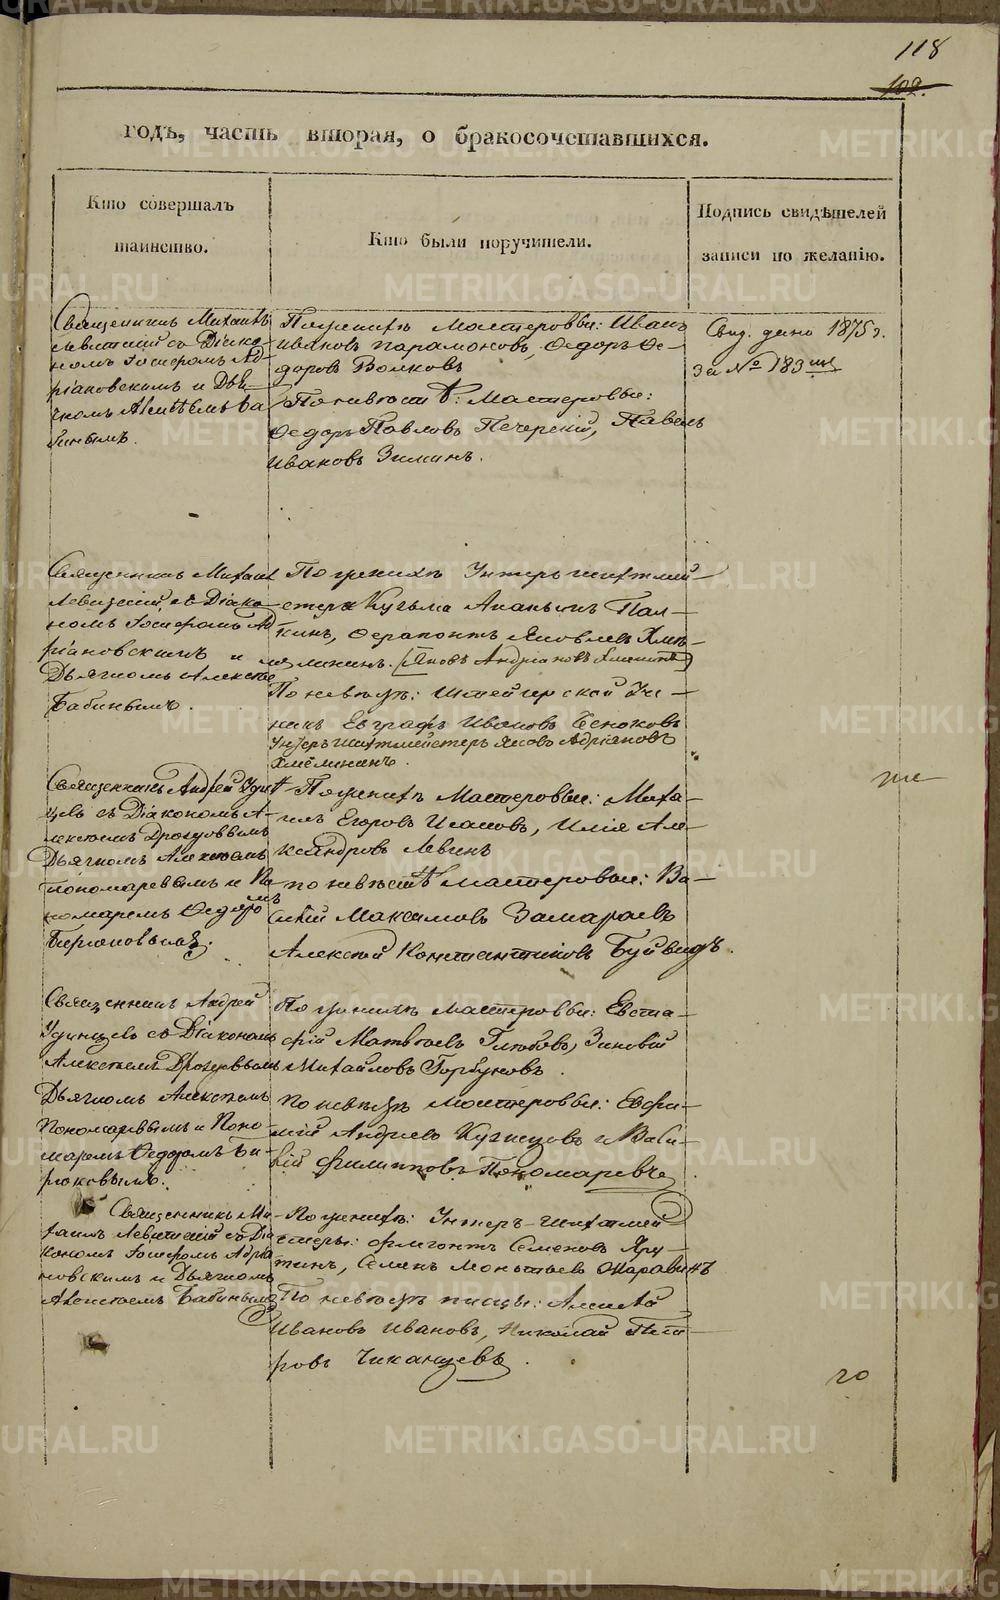 118
102.
годъ, часть вторая, о бракосочетавшихся.
Кто совершалъ
таинство.
Кто были поручители.
Подпись свидѣтелей
записи по желанію.
Священникъ Михаилъ
Левитскій съ Діако-
номъ Іосифомъ Ад-
ріановскимъ и Дья-
чкомъ Алексѣемъ Ба
бинымъ.
По женихѣ мастеровые: Иванъ
Ивановъ Парамоновъ, Ѳедоръ Ѳе-
доровъ Волковъ
По невѣстѣ: Мастеровые:
Ѳедоръ Павловъ Печерскій, Павелъ
Ивановъ Зиминъ.
Свид. дано 1875 г.
За № 183
Священникъ Михаилъ
Левитскій съ Діако-
номъ Іосифомъ Ад
ріановскимъ и
Дьячкомъ Алексѣе
Бабинымъ.
По женихѣ Унтеръ шихтмей-
стера Кузьма Ананьинъ Пал-
кинъ, Ѳерапонтъ Яковлевъ Хмѣ-
лининъ. (Яковъ Андріановъ Хмѣлининъ)
По невѣстѣ: Штейгерской Уче-
никъ Евграфъ Ивановъ
Унтеръ шихтмейстеръ Яковъ Адріановъ
Хмѣлининъ.
Священникъ Андрей Удин
цевъ съ Діакономъ А-
лексѣемъ Дроздовымъ
Дьячкомъ Алексѣемъ
Пономаревымъ и По
номаремъ Ѳедоромъ
Бирюковымъ.
По женихѣ Мастеровые: Миха-
илъ Егоровъ Исаковъ, Илія Але-
ксандровъ Левинъ
по невѣстѣ мастеровые: Ва-
силій Максимовъ Замараевъ
Алексѣй Константиновъ Буйвидъ.
Священникъ Андрей
Удинцевъ съ Діакономъ
Алексѣемъ Дроздовымъ
Дьячкомъ Алексѣемъ
Пономаревымъ и Поно-
маремъ Ѳедоромъ Би-
рюковымъ.
По женихѣ мастеровые: Евста-
фій Матвѣевъ Глѣбовъ, Зиновій
Михайловъ Горбуновъ.
По невѣстѣ мастеровые: Евфи-
мій Андреевъ Кузнецовъ и
Филипповъ Пономаревъ
Священникъ Ми-
хаилъ Левитскій съ Діа
кономъ Іосифомъ Адріа
новскимъ и Дьячкомъ
Алексѣемъ Бабинымъ
По женихѣ: Унтеръ-шихтмей
стеры: Семеновъ Яру
тинъ, Семенъ Шаравинъ
По невѣстѣ писцы:
Ивановъ Ивановъ, Николай Пет-
ровъ Чиканцевъ.
го
METRIKI.GASO-URAL.RU